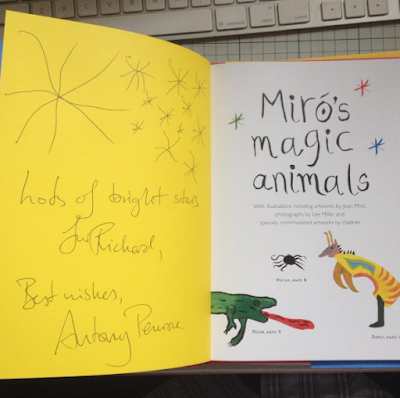 Lots of bright stars
for Richard,
Best wishes,
Antony Penrose.
Miró's
magic
animals
With illustrations including artworks by Joan Miró,
photographs by Lee Miller and
specially commissioned artworks by children